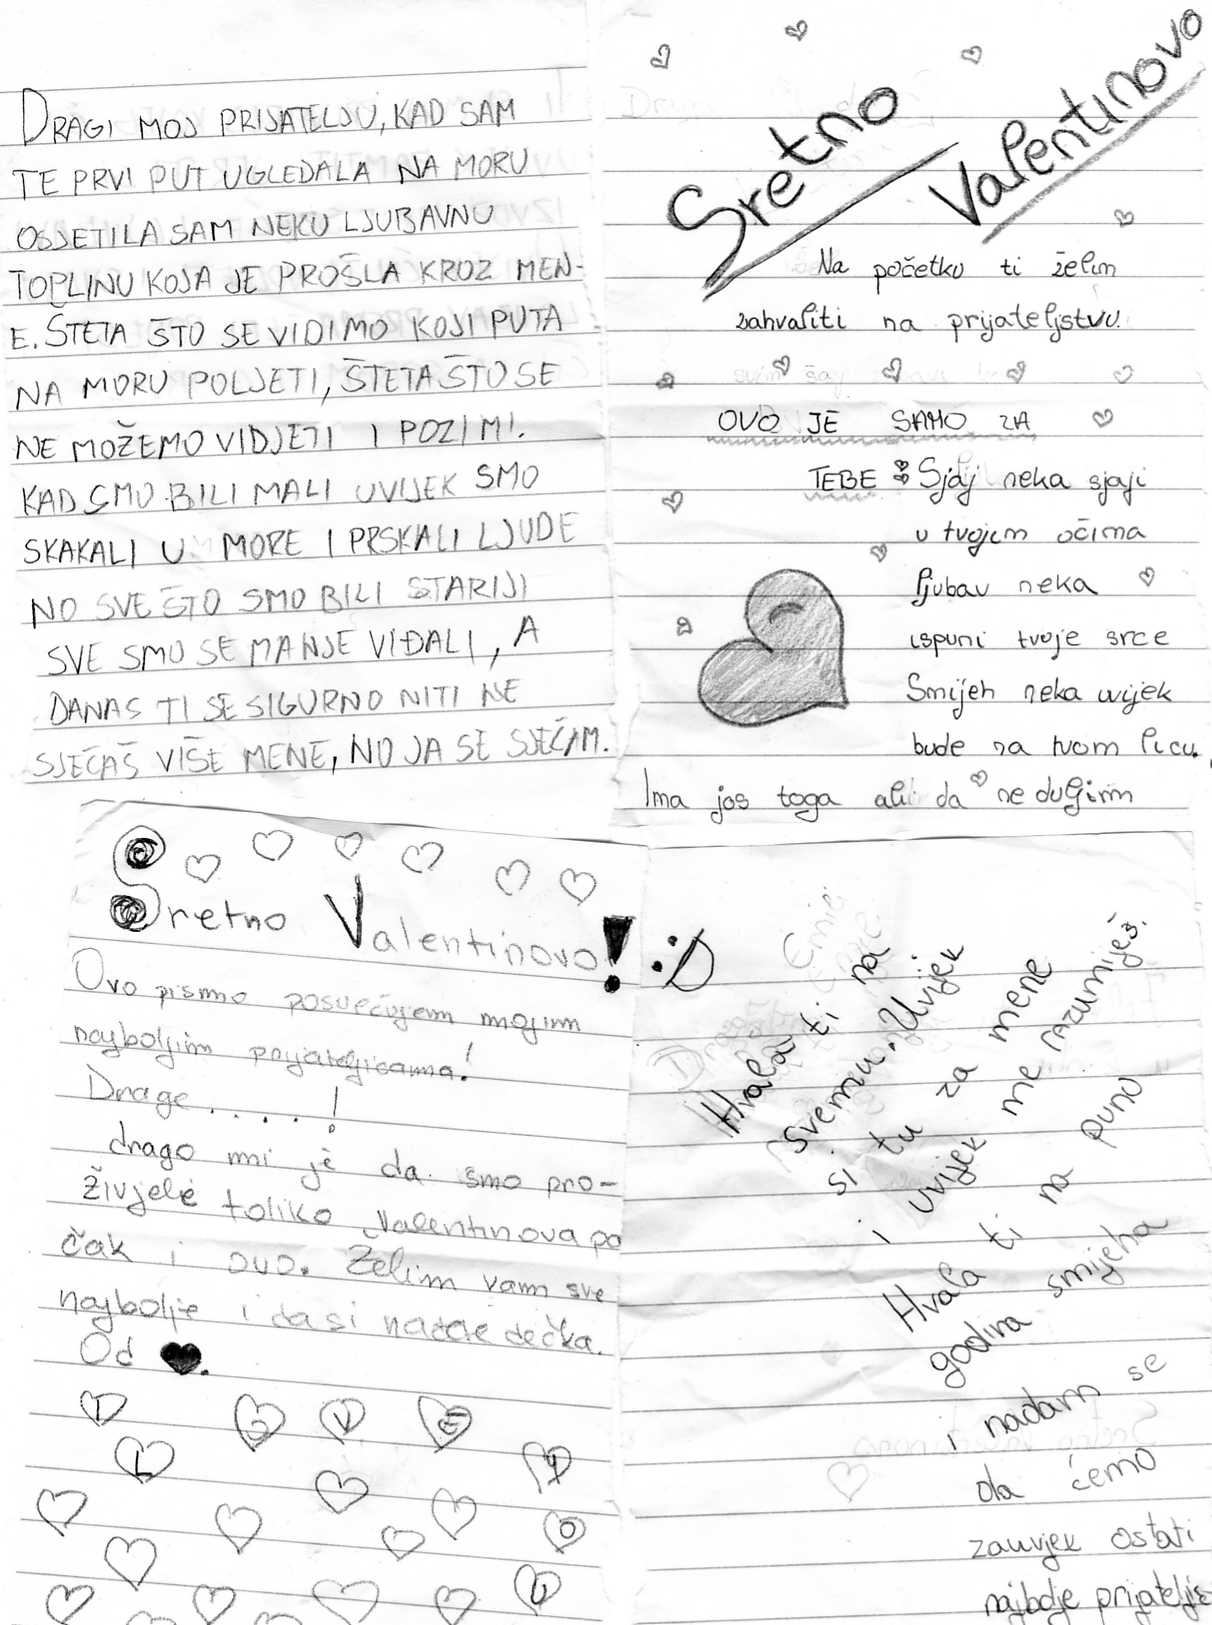 DRAGI MOJ PRIJATELJU, KAD SAM
TE PRVI PUT UGLEDALA NA MORU
OSJETILA SAM NEKU LJUBAVNU
TOPLINU KOJA JE PROŠLA KROZ MEN-
E. ŠTETA ŠTO SE VIDIMO KOJI PUTA
NA MORU POLJETI, ŠTETA ŠTO SE
NE MOŽEMO VIDJETI I POZIMI.
KAD SMO BILI MALI UVIJEK SMO
SKAKALI U MORE I PRSKALI LJUDE
NO SVE ŠTO SMO BILI STARIJI
SVE SMO SE MANJE VIĐALI, A
DANAS TI SE SIGURNO NITI NE
SJEĆAŠ VIŠE MENE, NO JA SE SJEĆAM.
Sretno Valentinovo
Na početku ti želim
zahvaliti na prijateljstvu.
OVO JE SAMO ZA
TEBE : Sjaj neka sjaji
u tvojim očima
ljubav neka
ispuni tvoje srce
Smijeh neka uvijek
bude na tvom licu.
Ima jos toga ali da ne duljim
Sretno Valentinovo! :D
Ovo pismo posvećujem mojim
najboljim prijateljicama!
Drage . . . . !
drago mi je da smo pro-
živjele toliko Valentinova pa
čak i ovo. Želim vam sve
najbolje i da si nađete dečka.
Od ♥.
I L O V E
Y
O
U
Hvala ti na
svemu. Uvijek
si tu za mene
i uvijek me razumiješ.
Hvala ti na puno
godina smijeha
i nadam se
da ćemo
zauvjek ostati
najbolje prijateljice